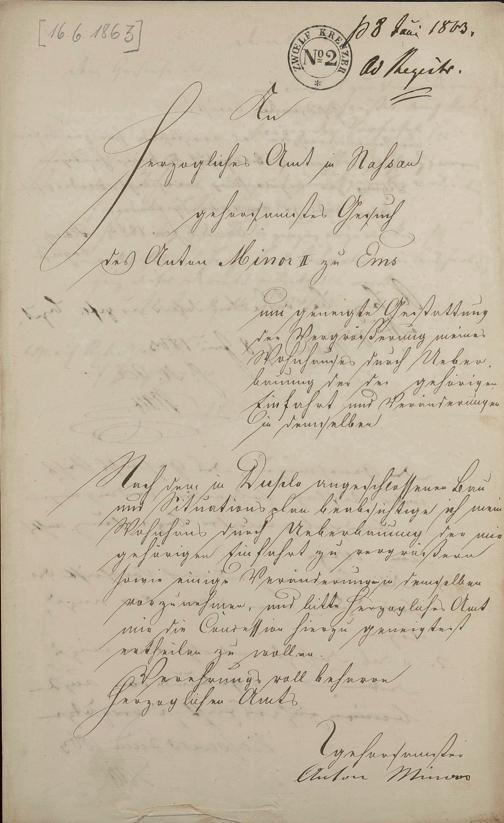 [16.6.1863]
ZWŒLF KREUZER
No 2
p 8 Juni 1863.
ad Registr.
An
Herzogliches Amt in Nassau
gehorsamstes Gesuch
des Anton Minor II zu Ems
um geneigte Gestattung
der Vergrößerung meines
Wohnhauses durch Ueber-
bauung der der gehörigen
Einfahrt und Veränderungen
in demselben
Nach dem in Duplo angeschlossenen Bau
und Situationsplan beabsichtige ich mein
Wohnhaus durch Ueberbauung der mir
gehörigen Einfahrt zu vergrößern
sowie einige Veränderungen in demselben
vorzunehmen, und bitte Herzogliches Amt
mir die Concession hierzu geneigtest
ertheilen zu wollen.
Verehrungsvoll beharre
Herzoglichen Amts
gehorsamster
Anton Minor